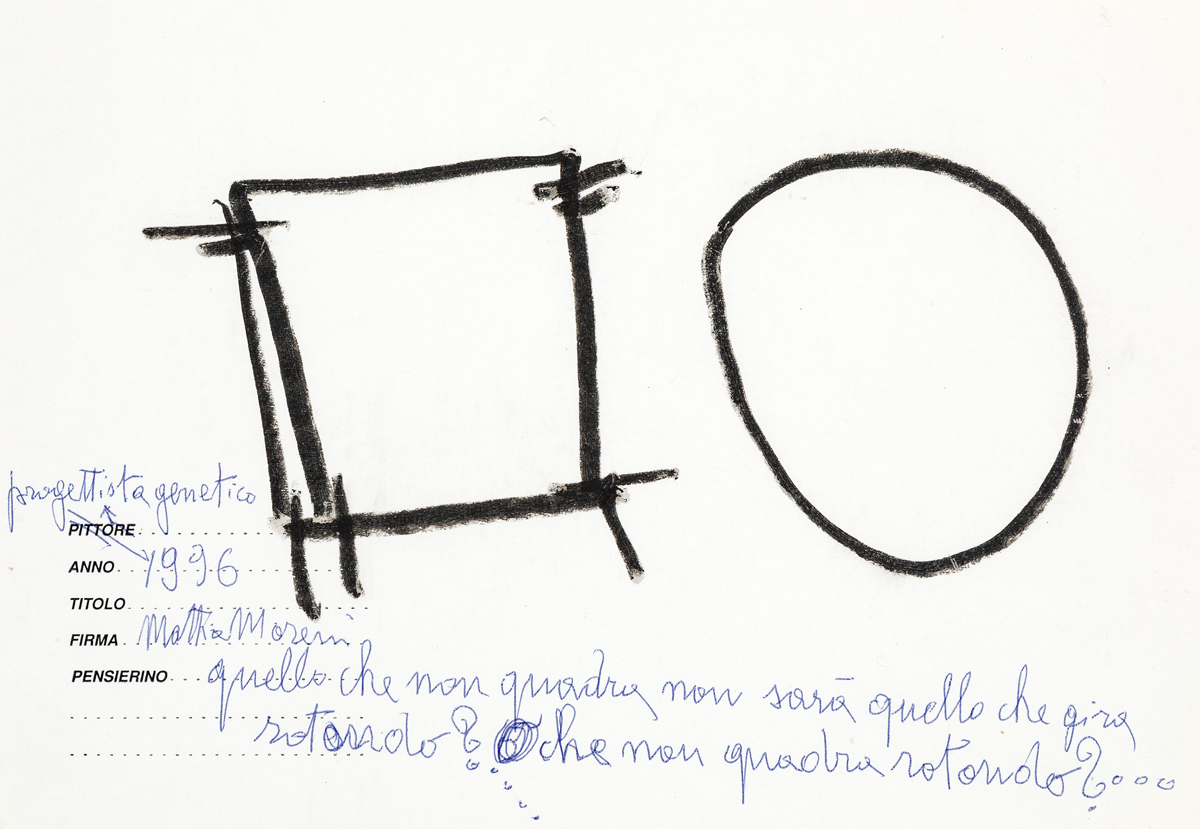 progettista genetico
PITTORE
ANNO 1996
TITOLO
FIRMA Mattia Moreni
PENSIERINO quello che non quadra non sarà quello che gira
rotondo? O che non quadra rotondo?...